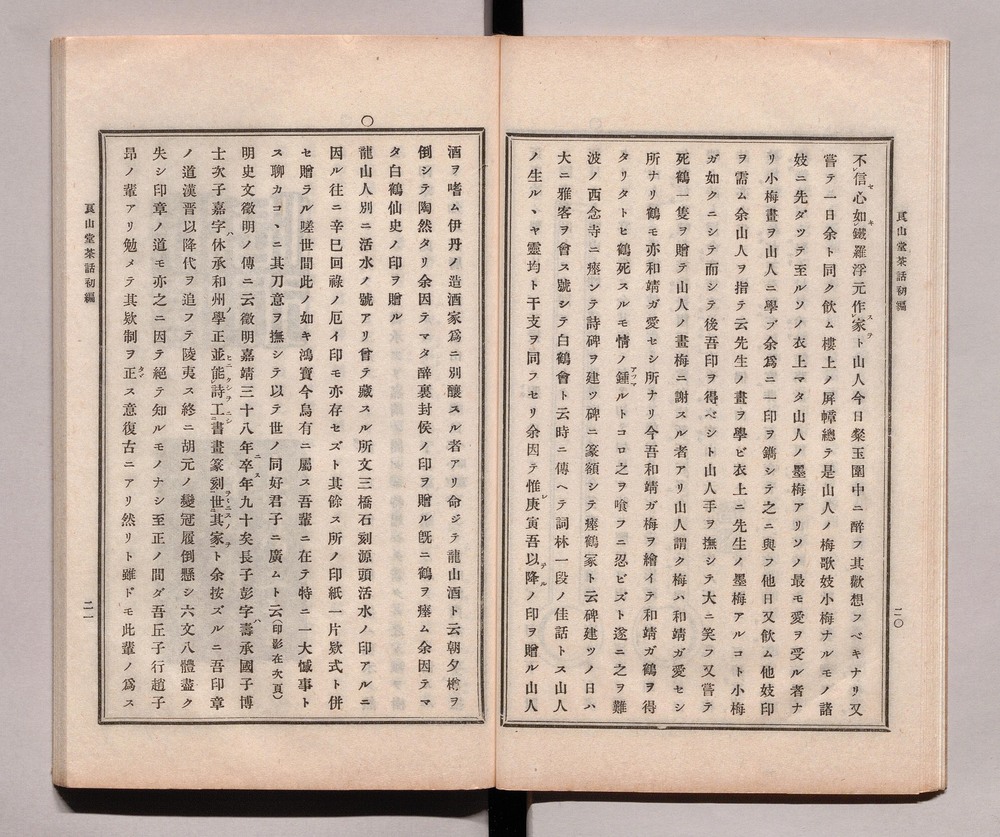 眞山堂茶話初編
二〇
不信心如鐵羅浮元作家ト山人今日粲玉圍中ニ醉フ其歡想フベキナリ又
嘗テ一日余ト同ク飮ム樓上ノ屏幛總テ是山人ノ梅歌妓小梅ナルモノ諸
妓ニ先ダツテ至ルソノ衣上マタ山人ノ墨梅アリソノ最モ愛ヲ受ル者ナ
リ小梅畫ヲ山人ニ學ブ余爲ニ一印ヲ鐫シテ之ニ與フ他日又飮ム他妓印
ヲ需ム余山人ヲ指テ云先生ノ畫ヲ學ビ衣上ニ先生ノ墨梅アルコト小梅
ガ如クニシテ而シテ後吾印ヲ得ベシト山人手ヲ撫シテ大ニ笑フ又嘗テ
死鶴一隻ヲ贈テ山人ノ畫梅ニ謝スル者アリ山人謂ク梅ハ和靖ガ愛セシ
所ナリ鶴モ亦和靖ガ愛セシ所ナリ今吾和靖ガ梅ヲ繪イテ和靖ガ鶴ヲ得
タリタトヒ鶴死スルモ情ノ鍾ルトコロ之ヲ喰フニ忍ビズト遂ニ之ヲ難
波ノ西念寺ニ瘞シテ詩碑ヲ建ツ碑ニ篆額シテ瘞鶴冢ト云碑建ツノ日ハ
大ニ雅客ヲ會ス號シテ白鶴會ト云時ニ傳ヘテ詞林一段ノ佳話トス山人
ノ生ル丶ヤ靈均ト干支ヲ同フセリ余因テ惟庚寅吾以降ノ印ヲ贈ル山人
酒ヲ嗜ム伊丹ノ造酒家爲ニ別釀スル者アリ命ジテ龍山酒ト云朝夕樽ヲ
倒シテ陶然タリ余因テマタ醉裏封侯ノ印ヲ贈ル旣ニ鶴ヲ瘞ム余因テマ
タ白鶴仙史ノ印ヲ贈ル
○
龍山人別ニ活水ノ號アリ曾テ藏スル所文三橋石刻源頭活水ノ印アルニ
因ル往ニ辛巳回祿ノ厄イ印モ亦存セズト其餘ス所ノ印紙一片欵式ト併
セ贈ラル嗟世間此ノ如キ鴻寶今烏有ニ屬ス吾輩ニ在テ特ニ一大憾事ト
ス聊カコ丶ニ其刀意ヲ撫シテ以テ世ノ同好君子ニ廣ムト云(印影在次頁)
明史文徵明ノ傳ニ云徵明嘉靖三十八年卒年九十矣長子彭字壽承國子博
士次子嘉字休承和州學正並能詩工書畫篆刻世其家ト余按ズルニ吾印章
ノ道漢晉以降代ヲ追フテ陵夷ス終ニ胡元ノ變冠履倒懸シ六文八體盡ク
失シ印章ノ道モ亦之ニ因テ絕テ知ルモノナシ至正ノ間ダ吾丘子行趙子
昂ノ輩アリ勉メテ其欵制ヲ正ス意復古ニアリ然リト雖ドモ此輩ノ爲ス
眞山堂茶話初編
二一